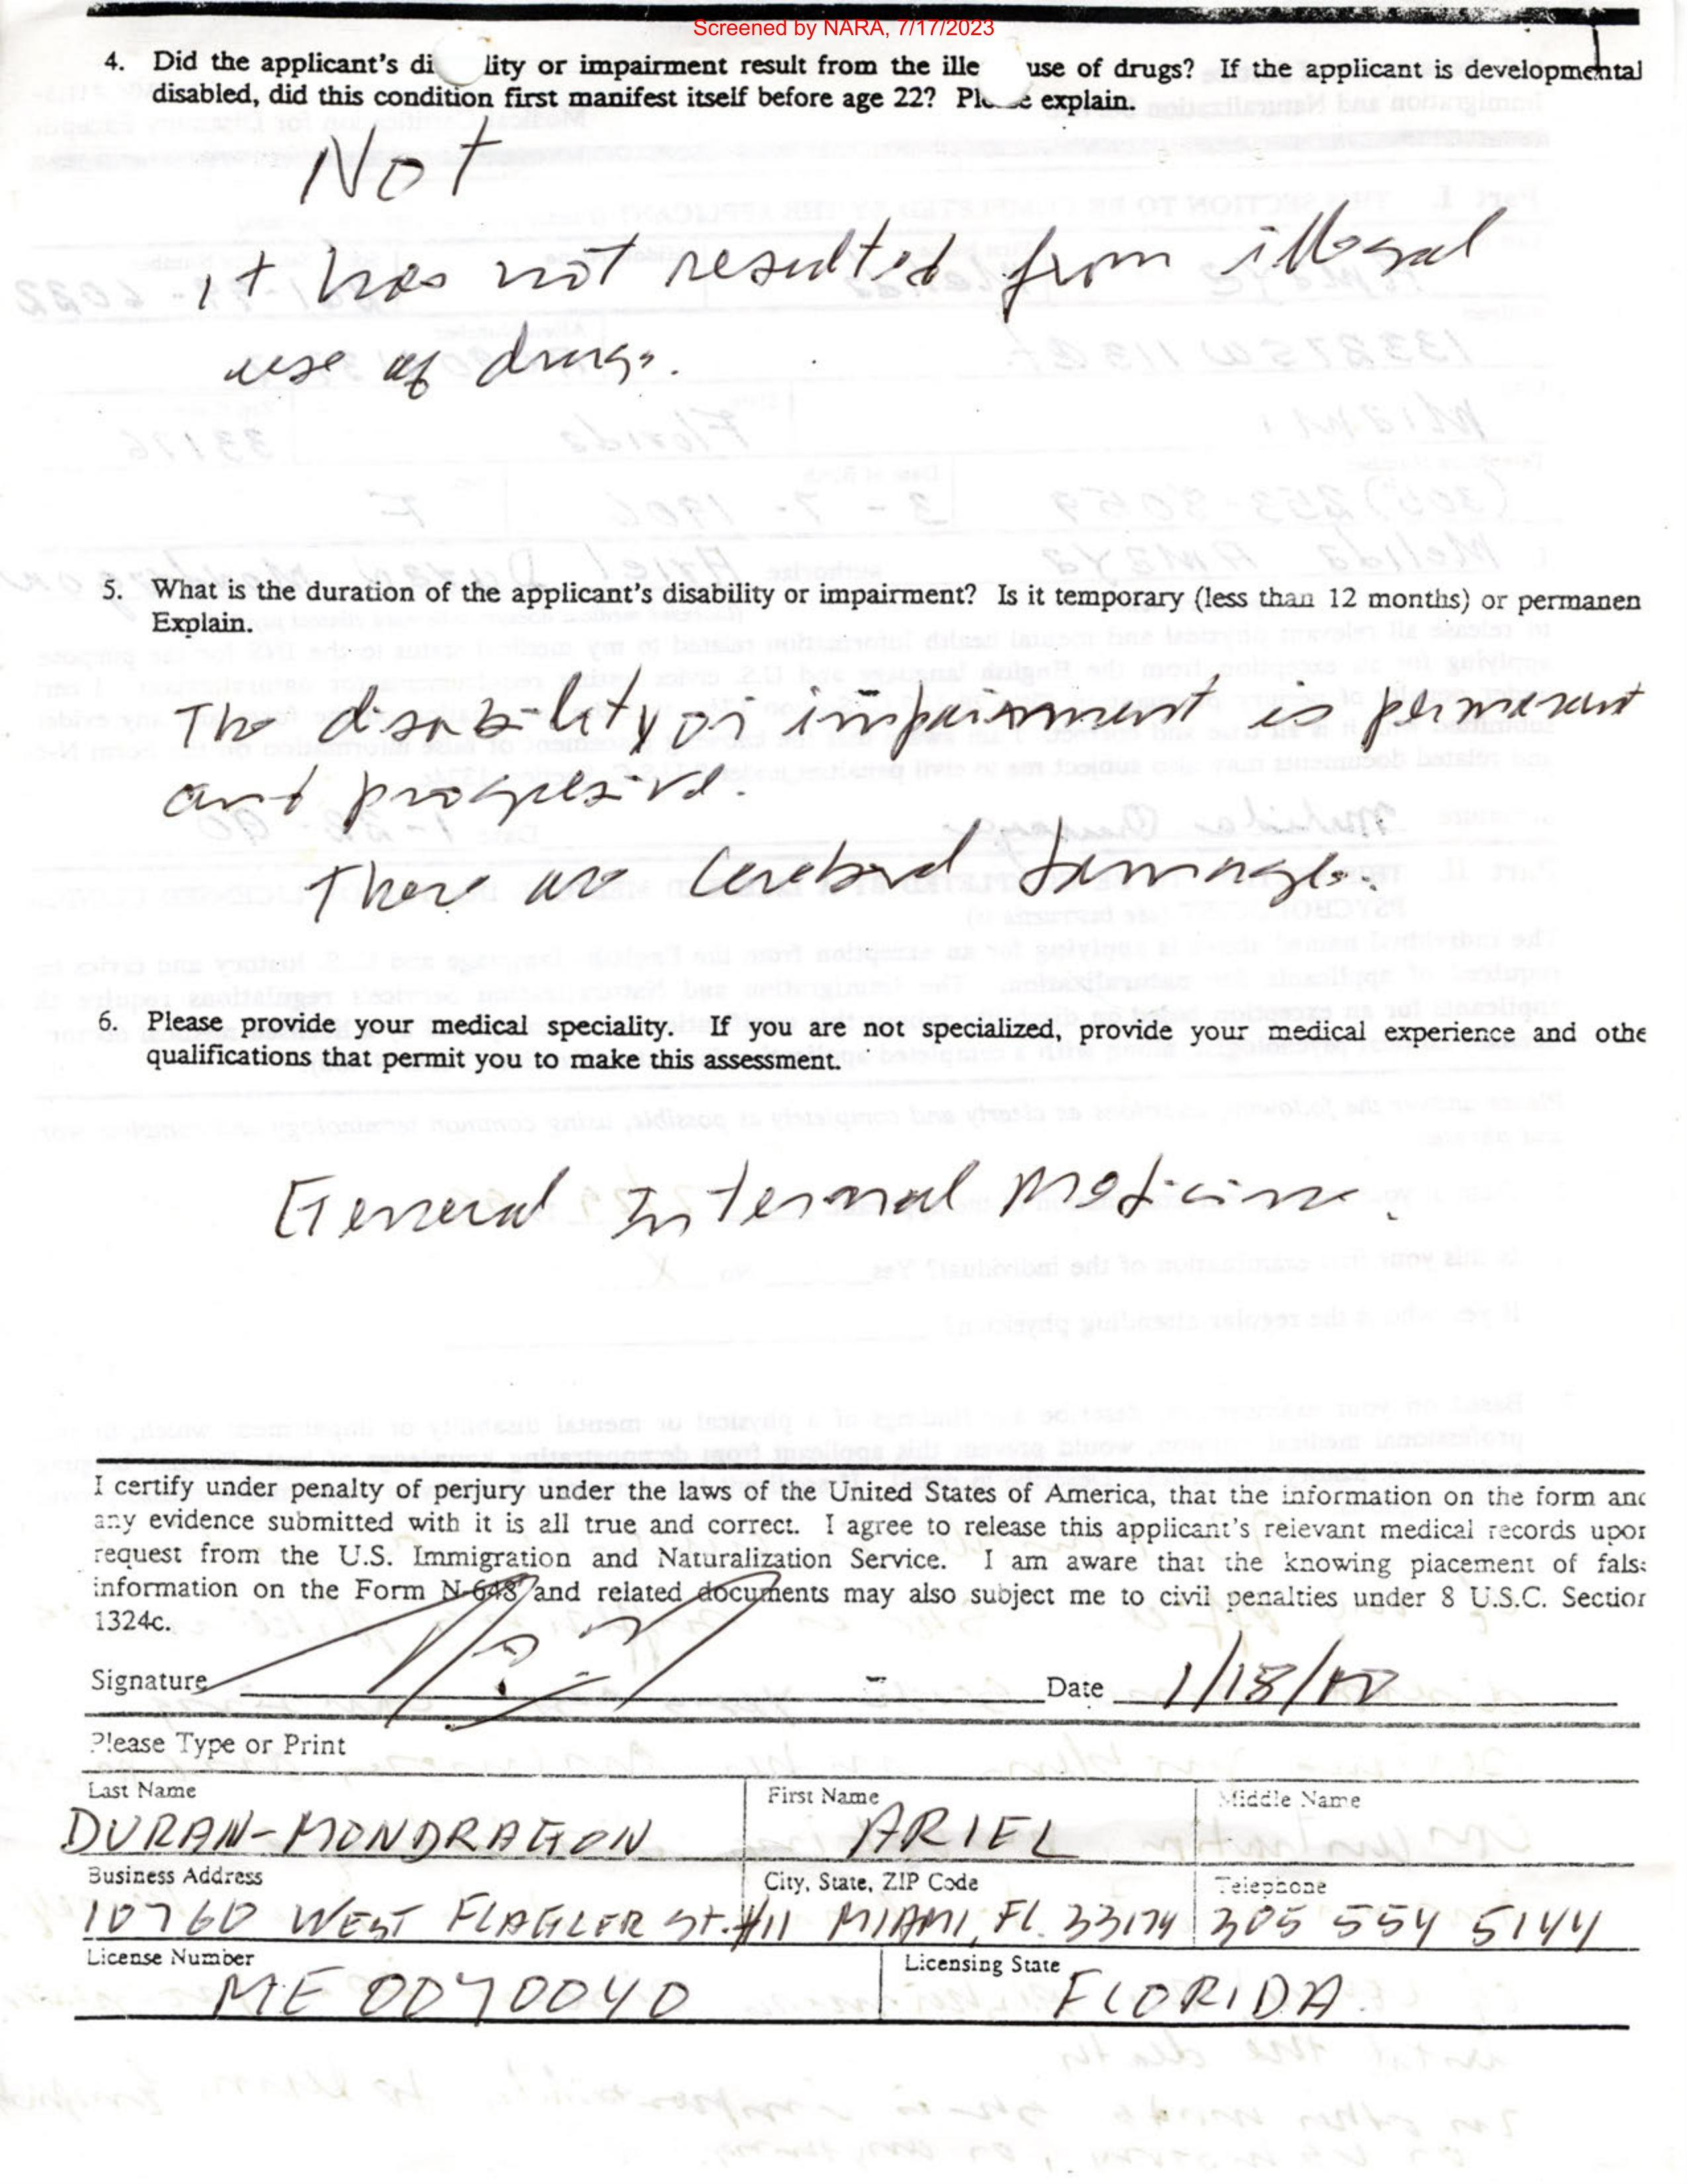 Screened by NARA, 7/17/2023
4. Did the applicant's di lity or impairment result from the ille use of drugs? If the applicant is developmental
disabled, did this condition first manifest itself before age 22? Ple e explain.
Not
it has not resulted from illegal
use of drugs.
5. What is the duration of the applicant's disability or impairment? Is it temporary (less than 12 months) or permanen
Explain.
The disability or impairment is permanent
and progresive.
There are cerebral damages.
6. Please provide your medical speciality. If you are not specialized, provide your medical experience and othe
qualifications that permit you to make this assessment.
General Internal Medicine.
I certify under penalty of perjury under the laws of the United States of America, that the information on the form and
any evidence submitted with it is all true and correct. I agree to release this applicant's relevant medical records upon
request from the U.S. Immigration and Naturalization Service. I am aware that the knowing placement of false
information on the Form N-648 and related documents may also subject me to civil penalties under 8 U.S.C. Section
1324c.
Signature Date 1/18/
Please Type or Print
Last Name First Name Middle Name
DURAN-MONDRAGON ARIEL
Business Address City, State, ZIP Code Telephone
10760 WEST FLAGLER St. #11 MIAMI, FL. 33174 305 554 5144
License Number Licensing State
ME 0070040 FLORIDA